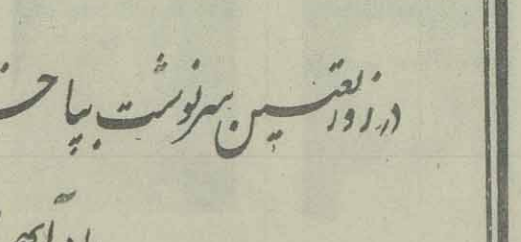 در روز تعیین سرنوشت بپا خـ